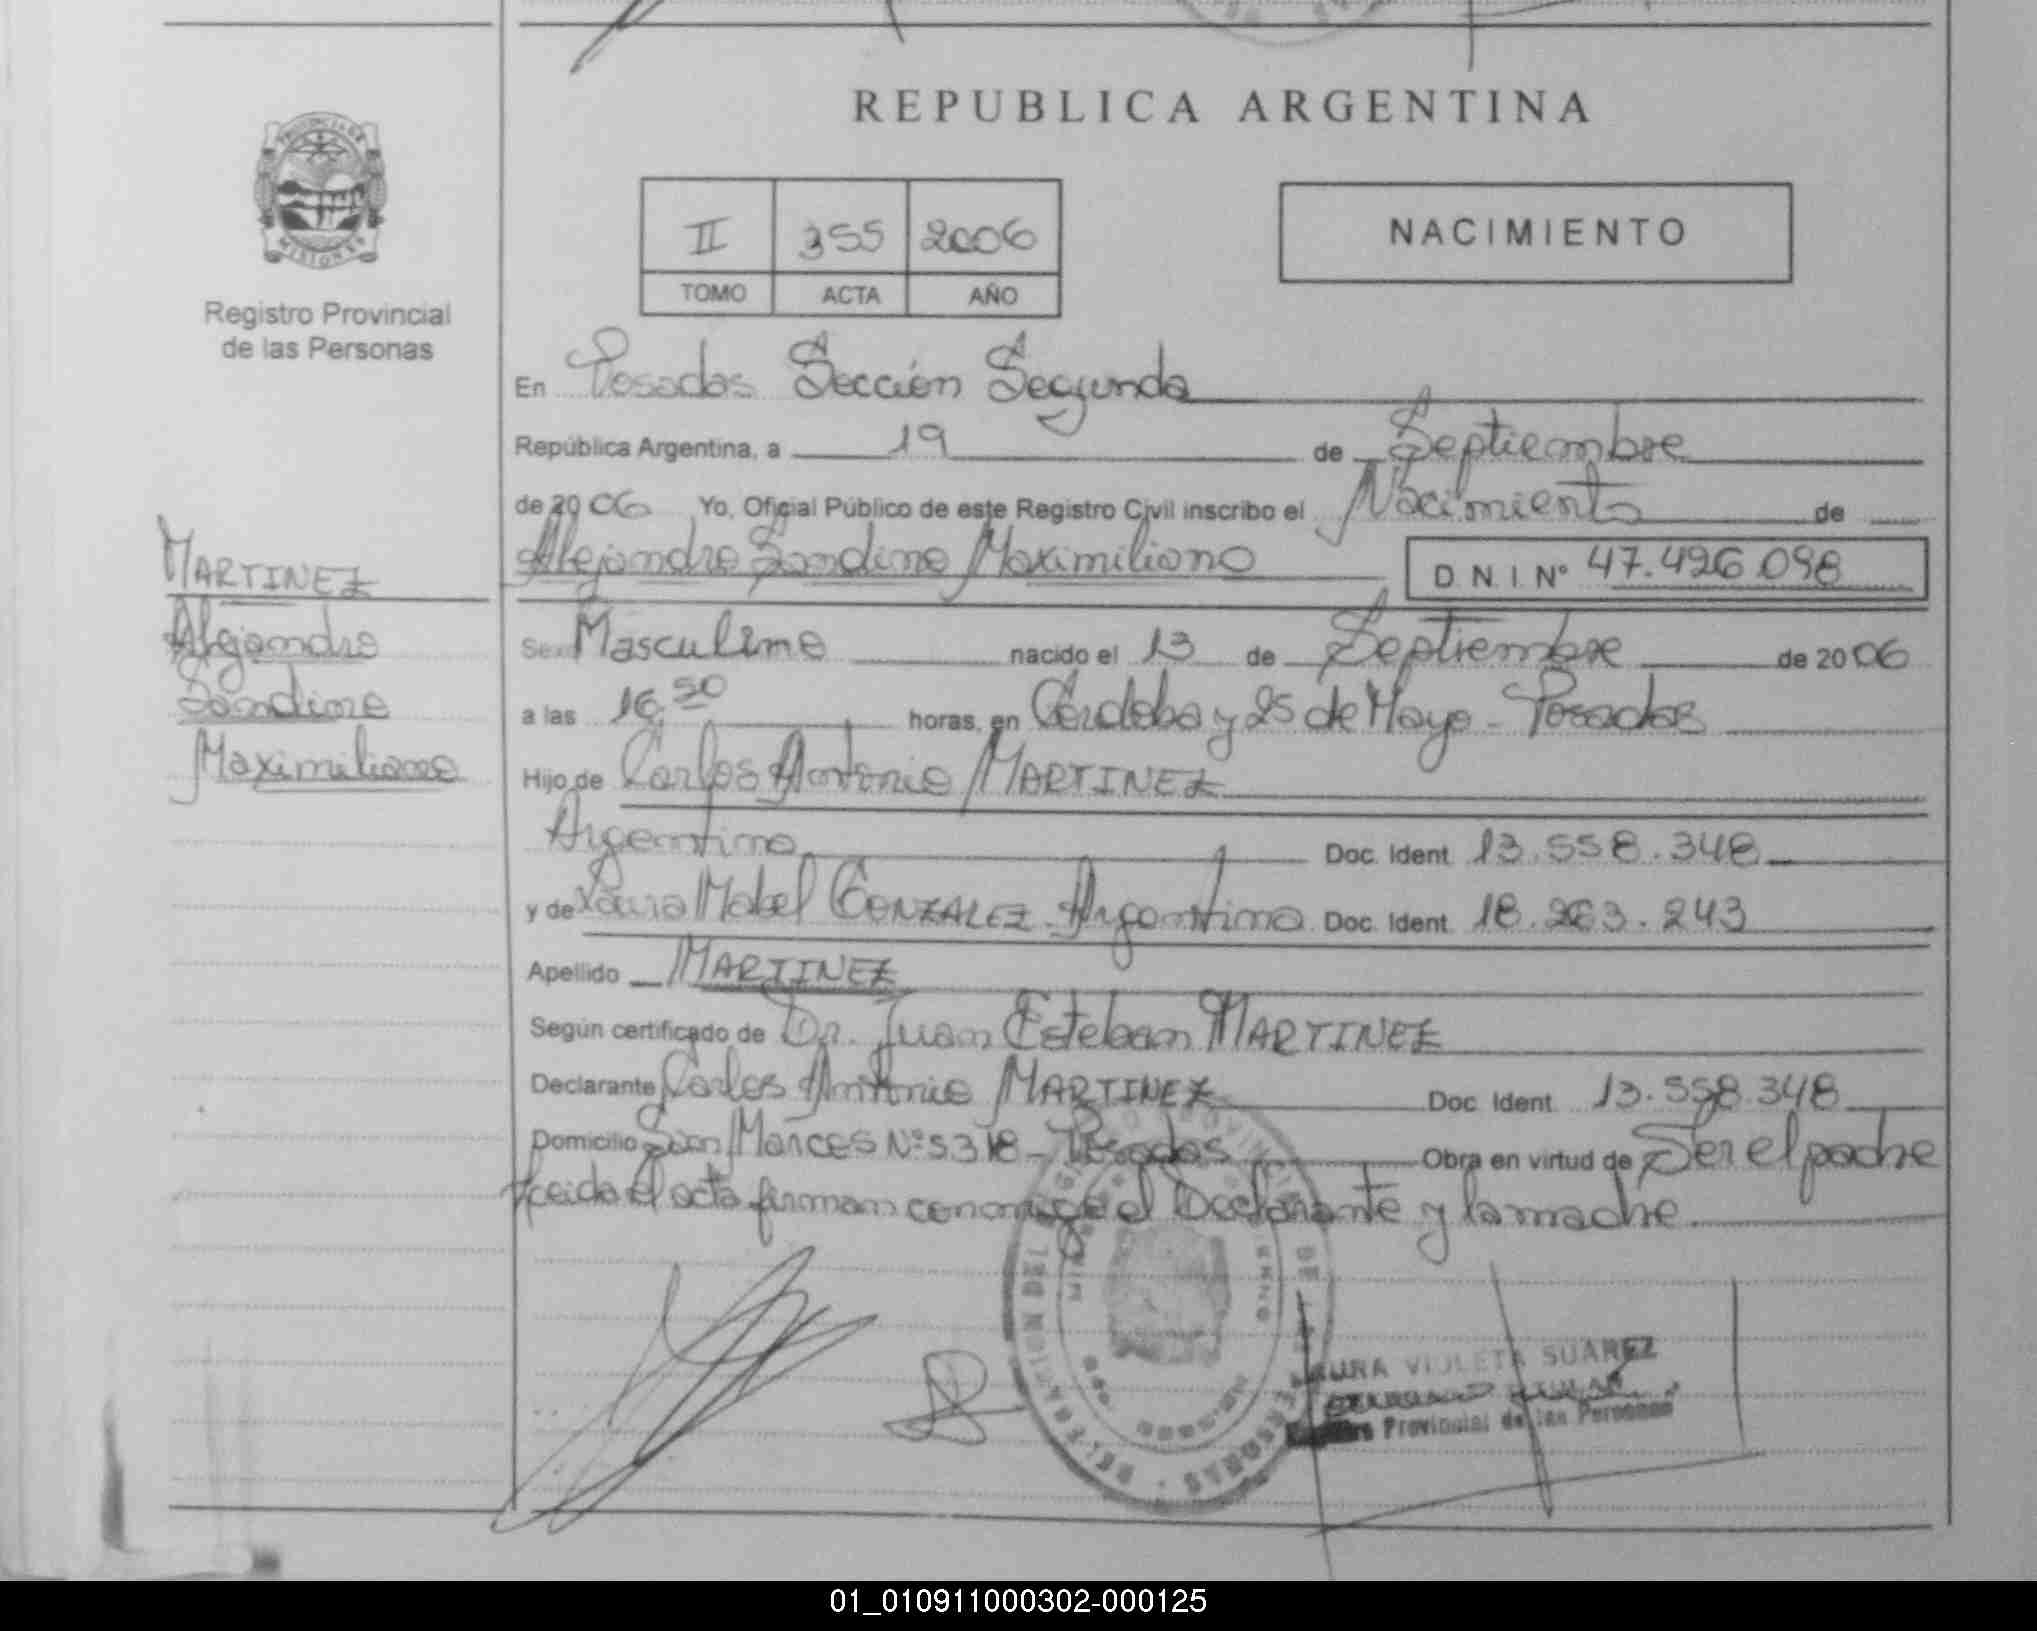 REPUBLICA ARGENTINA
PROVINCIA DE
MISIONES
Registro Provincial
de las Personas
II 355 2006
TOMO ACTA AÑO
NACIMIENTO
En Posadas Sección Segunda
República Argentina, a 19 de Septiembre
de 2006 Yo, Oficial Público de este Registro Civil inscribo el Nacimiento de
Alejandro Sandino Maximiliano D.N.I. Nº 47.426.098
MARTINEZ
Alejandro
Sandino
Maximiliano
Sexo Masculino nacido el 13 de Septiembre de 2006
a las 16,50 horas, en Córdoba y 25 de Mayo - Posadas
Hijo de Carlos Antonio MARTINEZ
Argentino Doc. Ident. 13.558.348
y de Laura Mabel GONZALEZ - Argentina Doc. Ident. 18.263.243
Apellido MARTINEZ
Según certificado de Dr. Juan Esteban MARTINEZ
Declarante Carlos Antonio MARTINEZ Doc. Ident. 13.558.348
Domicilio San Marcos Nº 5318 - Posadas Obra en virtud de Ser el padre
Leida el acta firman conmigo el Declarante y la madre.
VIOLETA SUAREZ
Provincial de las Personas
01_010911000302-000125